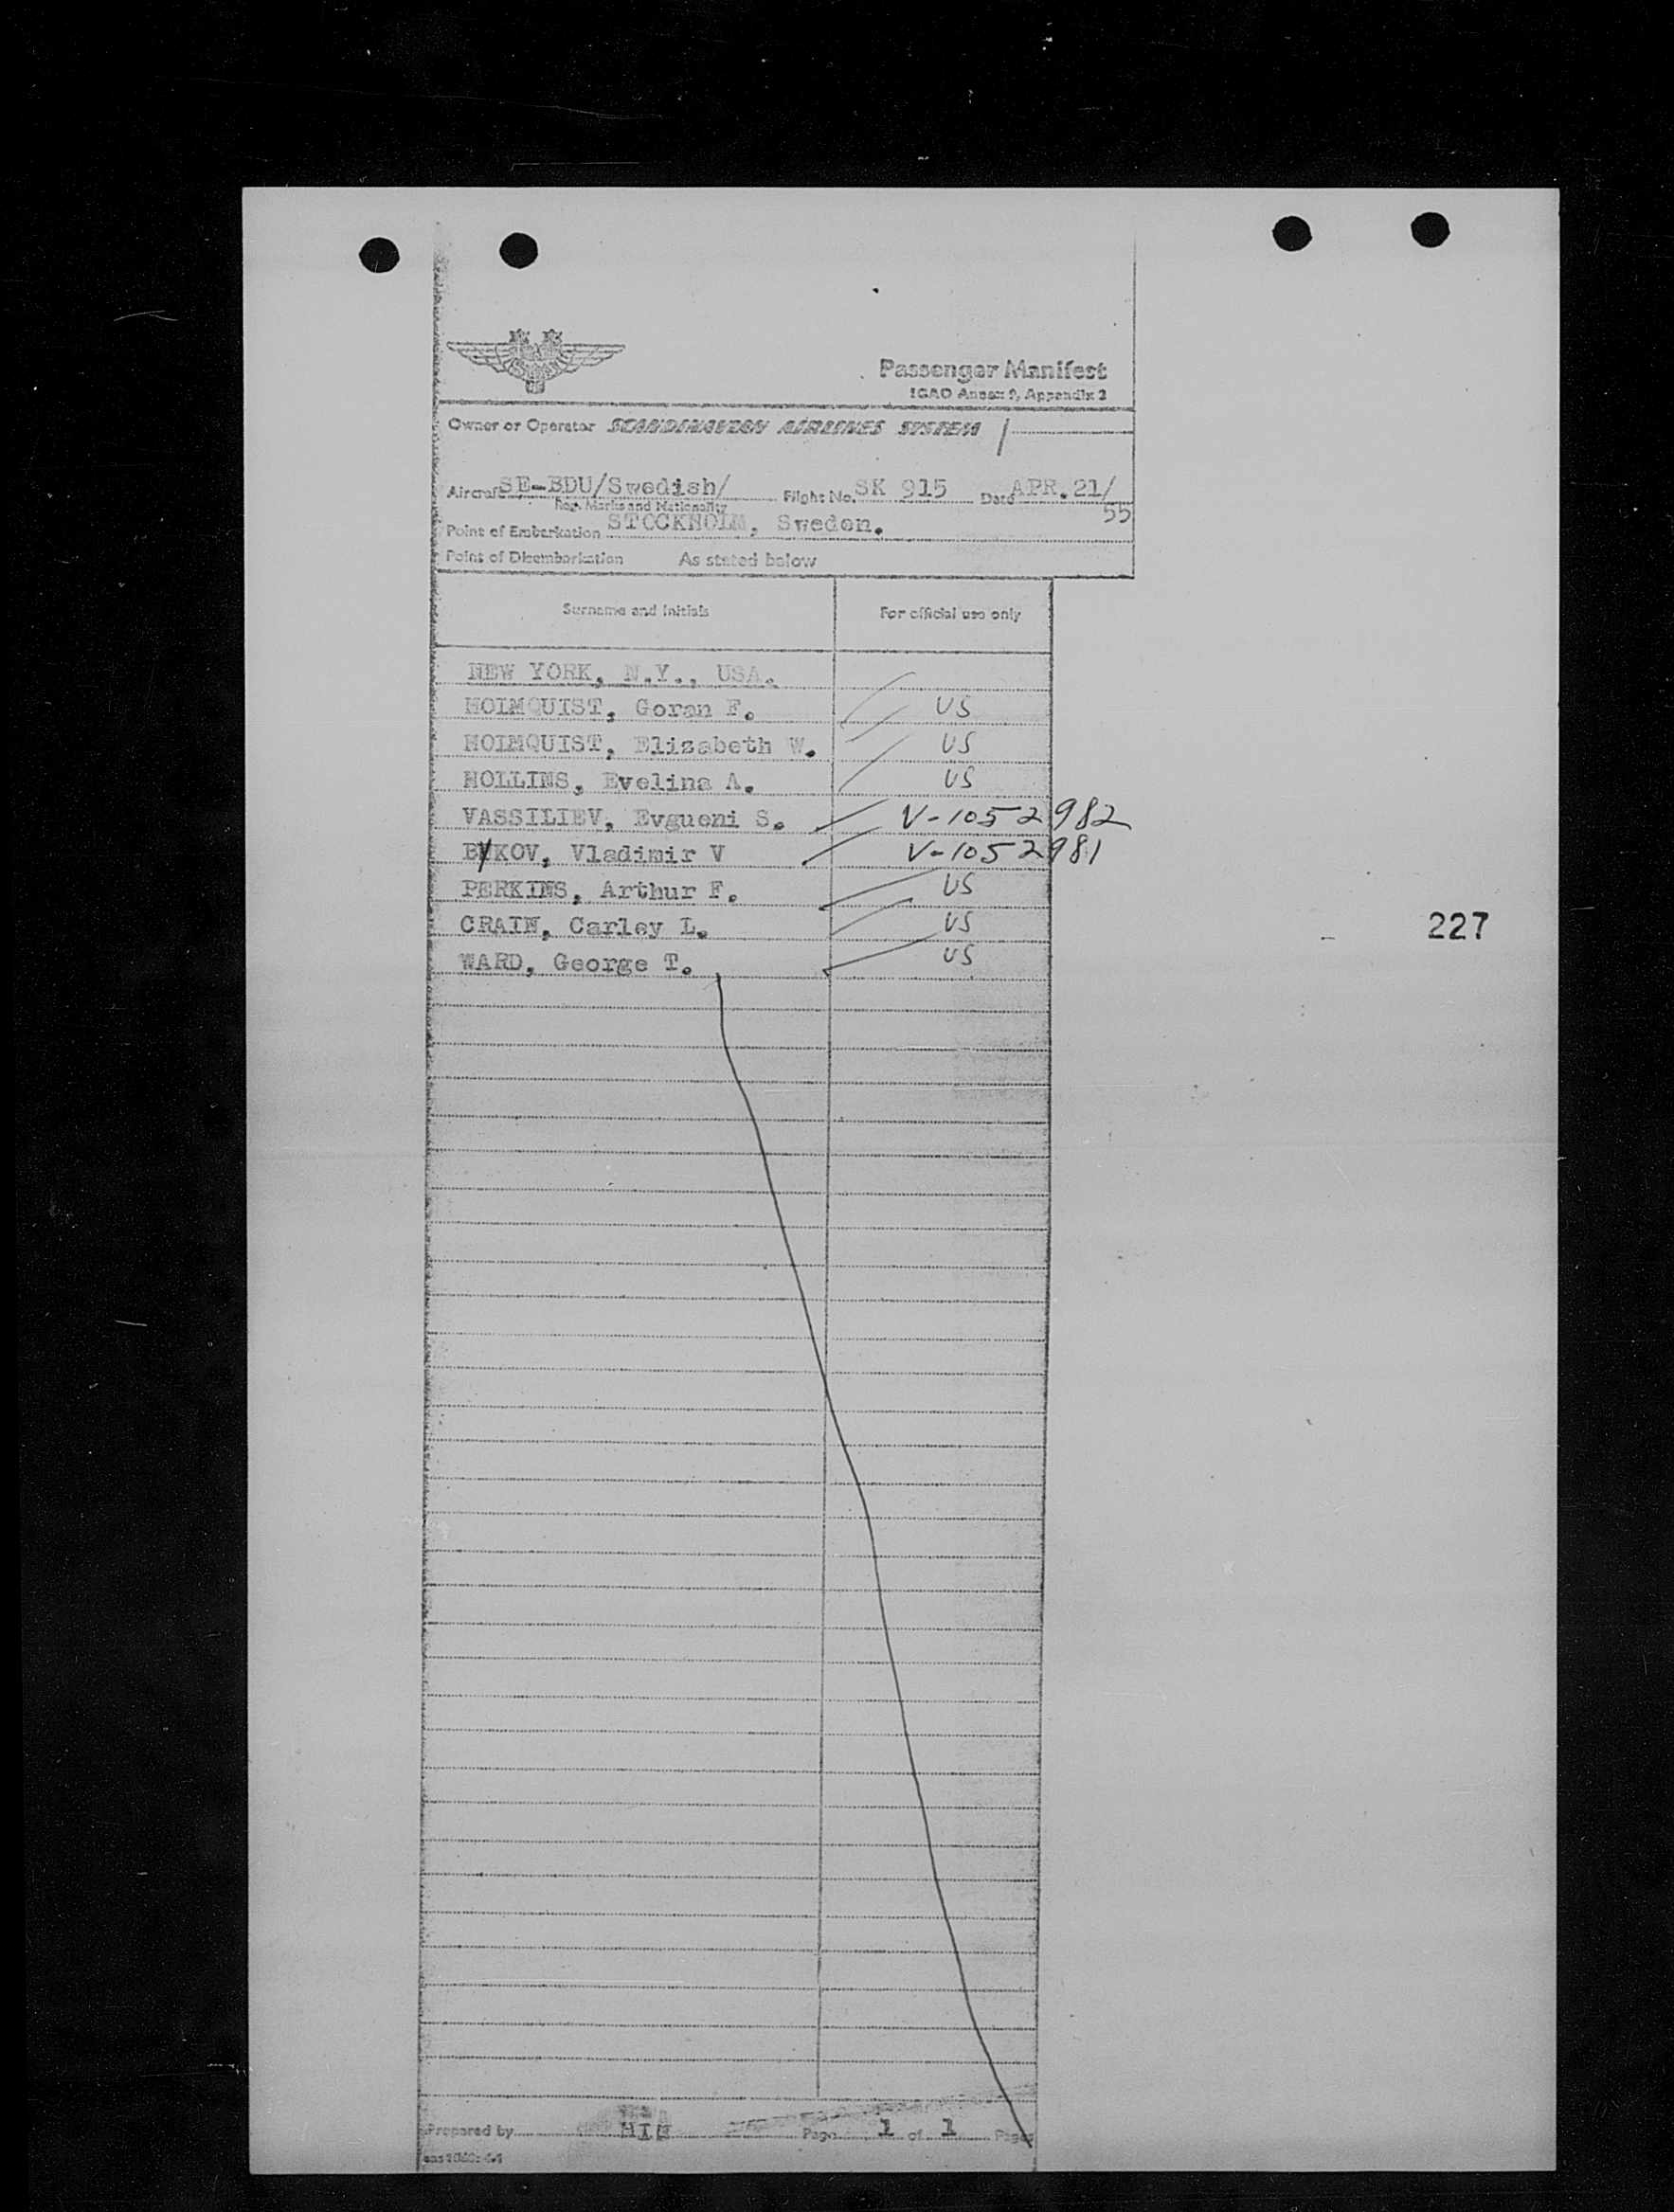 Passenger Manifest
ICAO Annex 9, Appendix 2
Owner or Operator SCANDINAVIAN AIRLINES SYSTEM
Aircraft SE-BDU/Swedish/ Flight No. SK 915 Date APR. 21/
Reg. Marks and Nationality
55
Point of Embarkation STOCKHOLM, Sweden.
Point of Disembarkation As stated below
Surname and Initials For official use only
NEW YORK, N.Y., USA.
HOLMQUIST, Goran F. US
HOLMQUIST, Elizabeth W. US
HOLLINS, Evelina A. US
VASSILIEV, Evgueni S. V-1052982
BYKOV, Vladimir V V-1052981
PERKINS, Arthur F. US
CRAIN, Carley L. US
227
WARD, George T. US
Prepared by Page 1 of 1 Pages